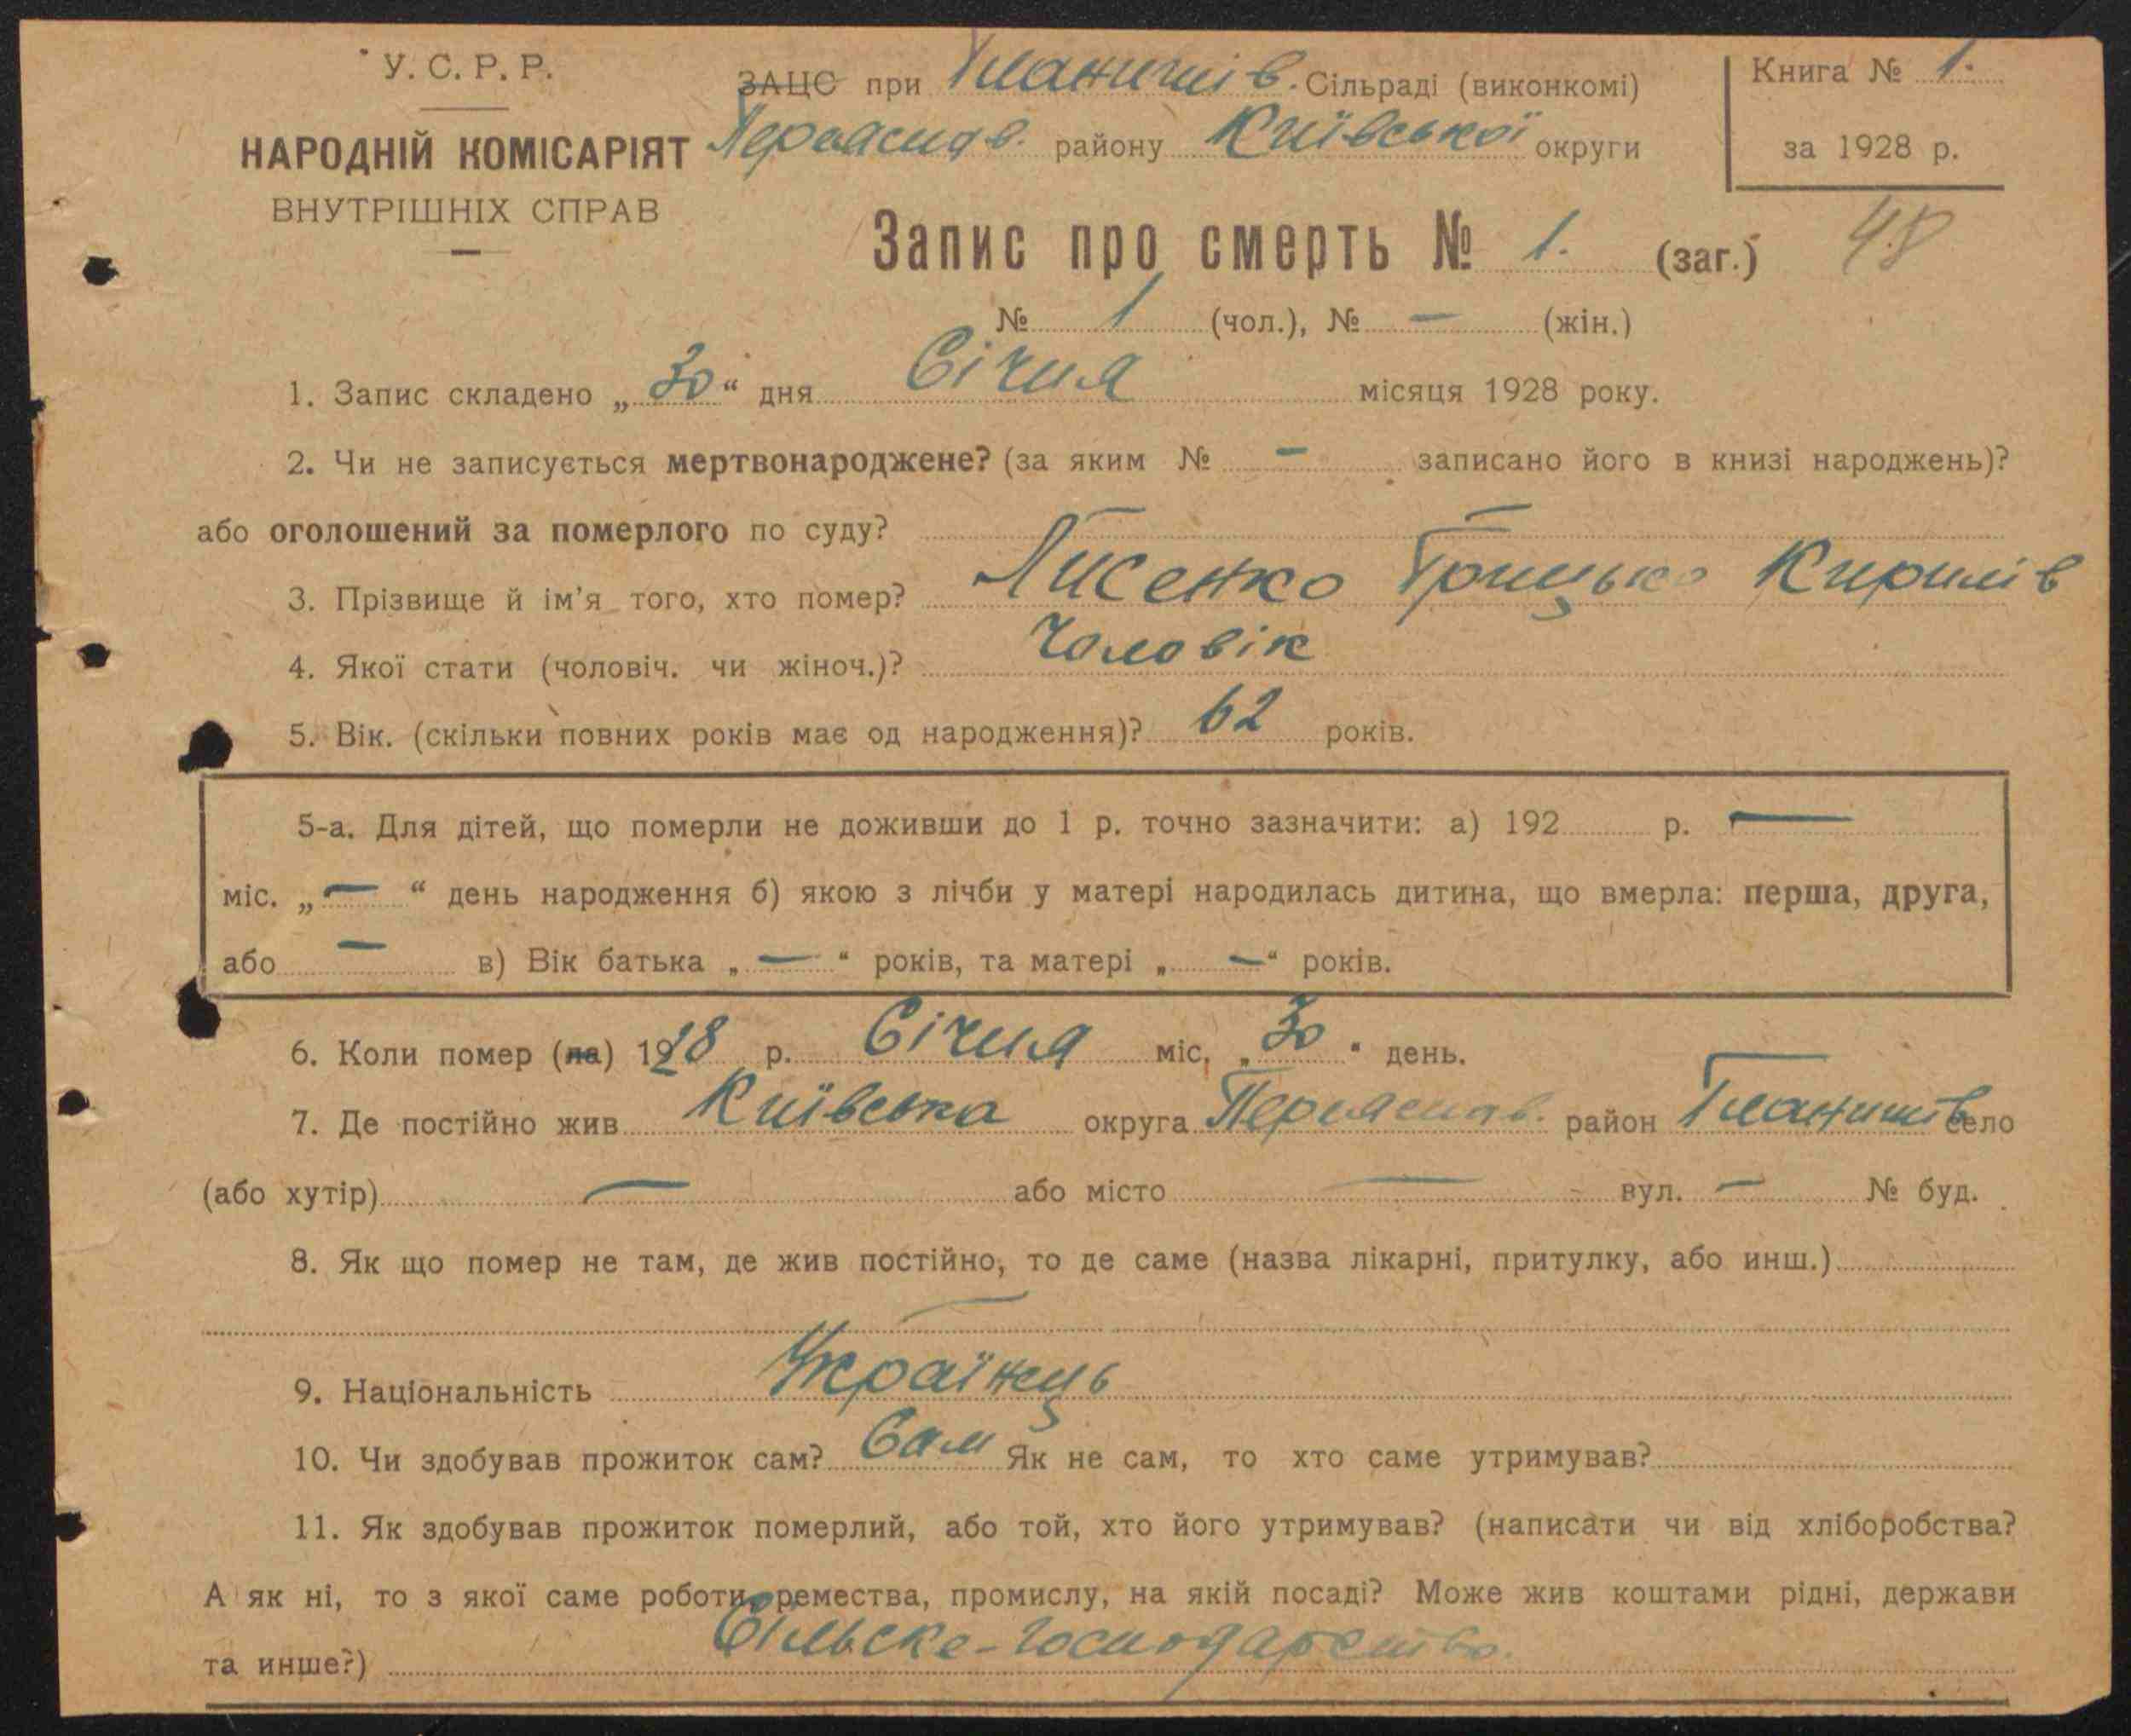 У. С. Р. Р.
НАРОДНІЙ КОМІСАРІЯТ
ВНУТРІШНІХ СПРАВ
ЗАЦС при Гланишів. Сільраді (виконкомі)
Переяслав. району Київської округи
Книга № 1.
за 1928 р.
48
Запис про смерть № 1. (заг.)
№ 1 (чол.), № — (жін.)
1. Запис складено „30“ дня Січня місяця 1928 року.
2. Чи не записується мертвонароджене? (за яким № — записано його в книзі народжень)?
або оголошений за померлого по суду? — —
3. Прізвище й ім’я того, хто помер? Лисенко Грицько Кирилів
4. Якої стати (чоловіч. чи жіноч.)? Чоловік
5. Вік. (скільки повних років має од народження)? 62 років.
5-а. Для дітей, що померли не доживши до 1 р. точно зазначити: а) 192 р. —
міс. „—“ день народження б) якою з лічби у матері народилась дитина, що вмерла: перша, друга,
або — в) Вік батька „—“ років, та матері „—“ років.
6. Коли помер (ла) 1928 р. Січня міс. „30“ день.
7. Де постійно жив Київська округа Переяслав. район Гланишів село
(або хутір) — або місто — вул. — № буд.
8. Як що помер не там, де жив постійно, то де саме (назва лікарні, притулку, або инш.)
—
9. Національність Українець
10. Чи здобував прожиток сам? Сам Як не сам, то хто саме утримував?
11. Як здобував прожиток померлий, або той, хто його утримував? (написати чи від хліборобства?
А як ні, то з якої саме роботи, ремества, промислу, на якій посаді? Може жив коштами рідні, держави
та инше?) Сільске-господарство.